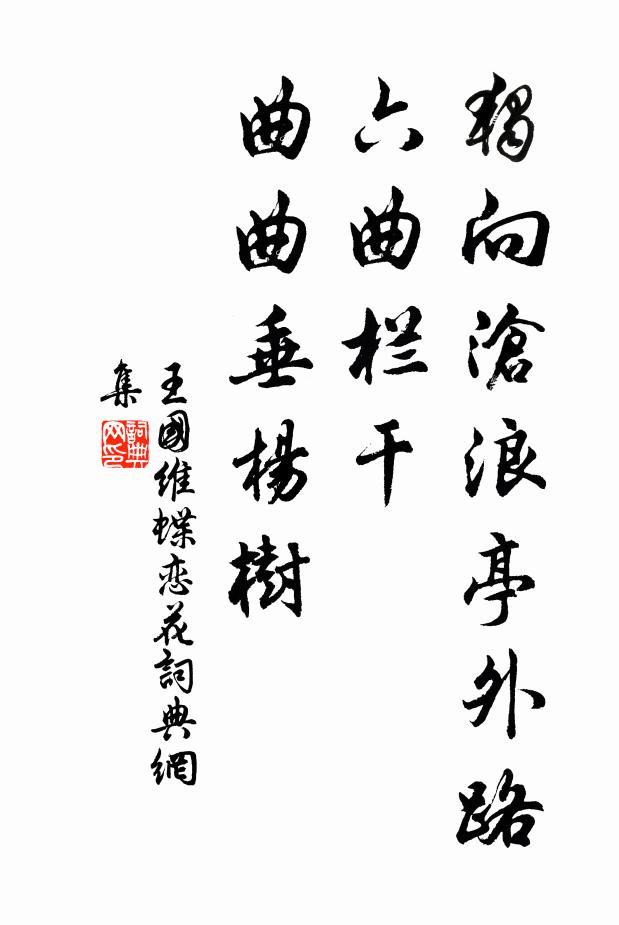 獨向滄浪亭外路
六曲栏干
曲曲垂楊樹
王國維蝶恋花詞典網
集
詞典
网印